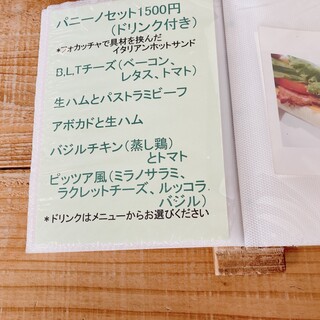 パニーノセット1500円
(ドリンク付き)
*フォカッチャで具材を挟んだ
イタリアンホットサンド
B,L,Tチーズ(ベーコン、
レタス、トマト)
生ハムとパストラミビーフ
アボカドと生ハム
バジルチキン(蒸し鶏)
とトマト
ピッツア風(ミラノサラミ、
ラクレットチーズ、ルッコラ
バジル)
*ドリンクはメニューからお選びください